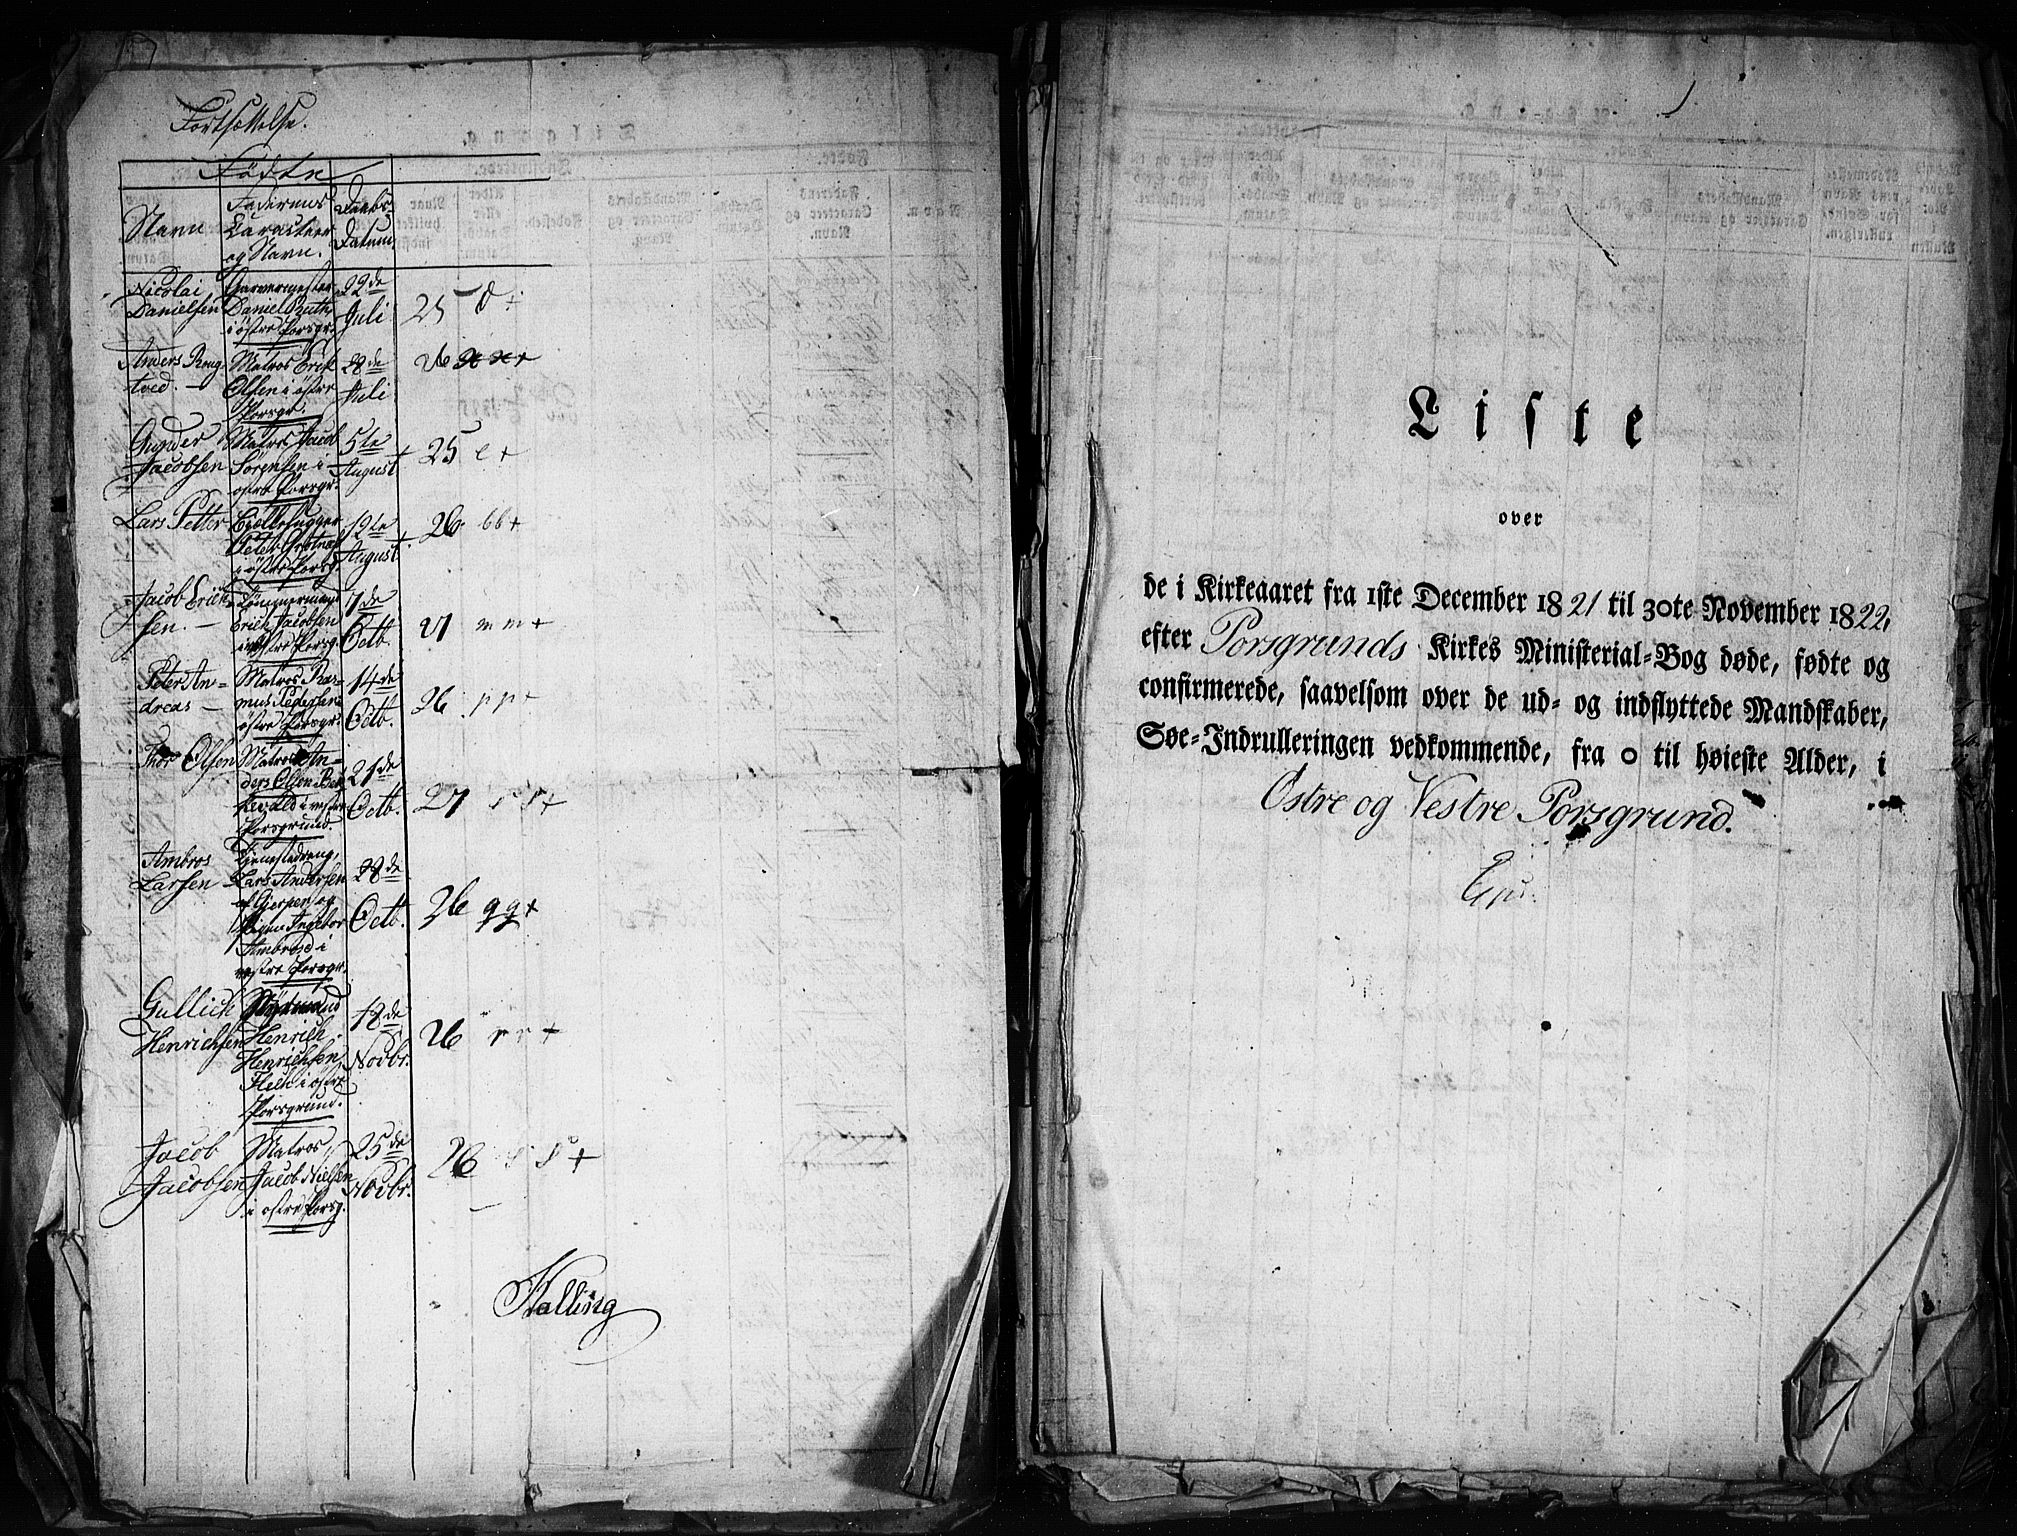 Fortsættelse.
Födte
Navn
Faderens
Caracteer
og Navn.
Daabs
Datum.
Nicolai
Danielsen
Garvermester
Daniel Ruth,
i östre Porsgr.
22de
Juli
25 d +
Anders Rog
tved. —
Matros Erik
Olsen i östre
Porsgr.
28de
Juli
26
Gunder
Jacobsen
Matros Jacob
Sörensen i
östre Porsgr.
5te
August
25 e +
Lars Petter
Peter
i östre Porsg.
19te
August.
26 bb +
Jacob Erich
sen. —
Tömmermand
Erich Jacobsen
i vestre Porsg.
7de
Octb.
27 m m +
Peter An=
dreas —
Matros Ras=
mus Pedersen
östre Porsgr.
14de
Octb.
26 pp +
Thor Olsen
Matros An=
ders Olsen
i vestre
Porsgrund.
21de
Octb.
27 s s +
Ambros
Larsen
Tjenestedreng,
Lars Andersen
af Gjerpen og
Pigen Ingebor
Ambros d i
vestre Porsgr.
28de
Octb.
26 qq +
Gullich
Henrichsen
Henrich
Henrichsen
i östre
Porsgrund.
18de
Novbr.
26 r r +
Jacob
Jacobsen
Matros
Jacob Nielsen
i östre Porsg.
25de
Novbr.
26 s s +
Halling
Liste
over
de i Kirkeaaret fra 1ste December 1821 til 30te November 1822,
efter Porsgrunds Kirkes Ministerial=Bog døde, fødte og
confirmerede, saavelsom over de ud= og indflyttede Mandskaber,
Søe=Indrulleringen vedkommende, fra 0 til høieste Alder, i
Østre og Vestre Porsgrund.